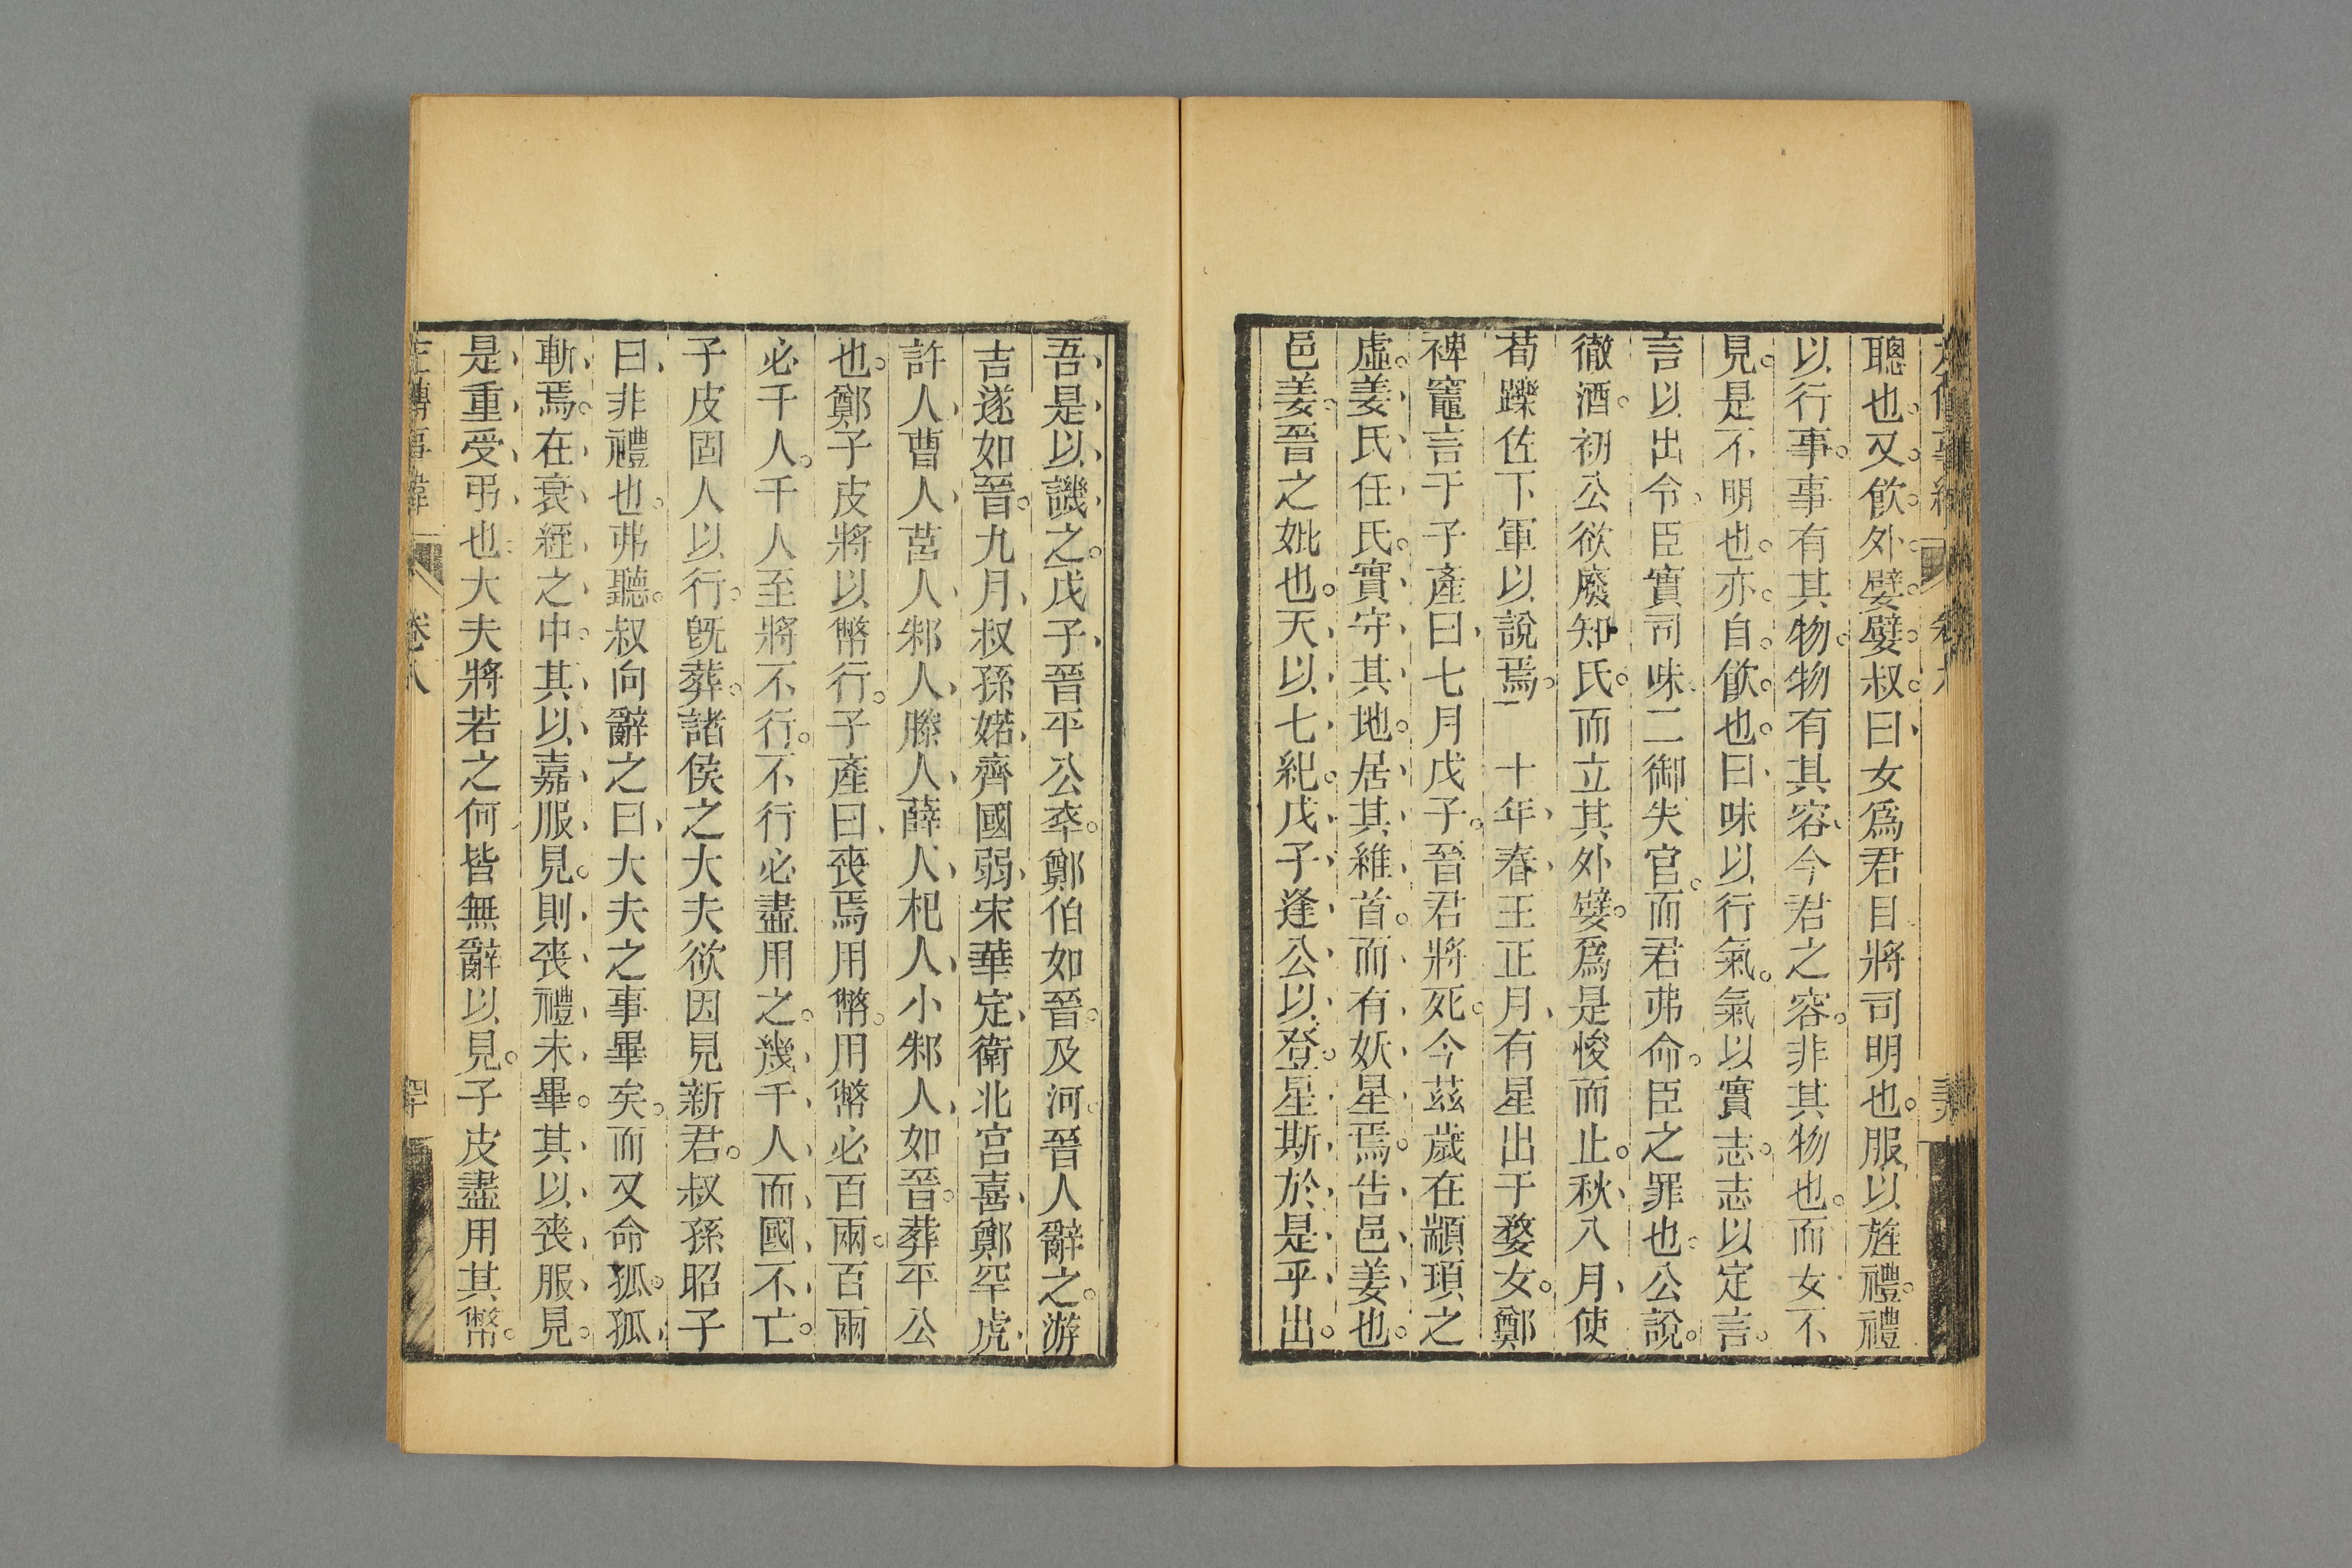 聰也又飲外嬖嬖叔曰女爲君目將司明也服以旌禮禮
以行事事有其物物有其容今君之容非其物也而女不
見是不明也亦自飮也曰味以行氣氣以實志志以定言
言以出令臣實司味二御失官而君弗命臣之罪也公說
徹酒初公欲廢知氏而立其外嬖爲是悛而止秋八月使
荀躒佐下軍以說焉 十年春王正月有星出于婺女鄭
禆竈言于子產曰七月戊子晉君將死今茲歲在顓頊之
虛姜氏任氏實守其地居其維首而有妖星焉告邑姜也
邑姜晉之妣也天以七紀戊子逢公以登星斯於是乎出
吾是以譏之戊子晉平公卒鄭伯如晉及河晉人辭之游
吉遂如晉九月叔孫婼齊國弱宋華定衛北宮喜鄭罕虎
許人曹人莒人邾人滕人薛人杞人小邾人如晉葬平公
也鄭子皮將以幣行子產曰喪焉用幣用幣必百兩百兩
必千人千人至將不行不行必盡用之幾千人而國不亡
子皮固人以行旣葬諸侯之大夫欲因見新君叔孫昭子
曰非禮也弗聽叔向辭之曰大夫之事畢矣而又命孤孤
斬焉在衰絰之中其以嘉服見則喪禮未畢其以喪服見
是重受弔也大夫將若之何皆無辭以見子皮盡用其幣
左傳事緯 卷八